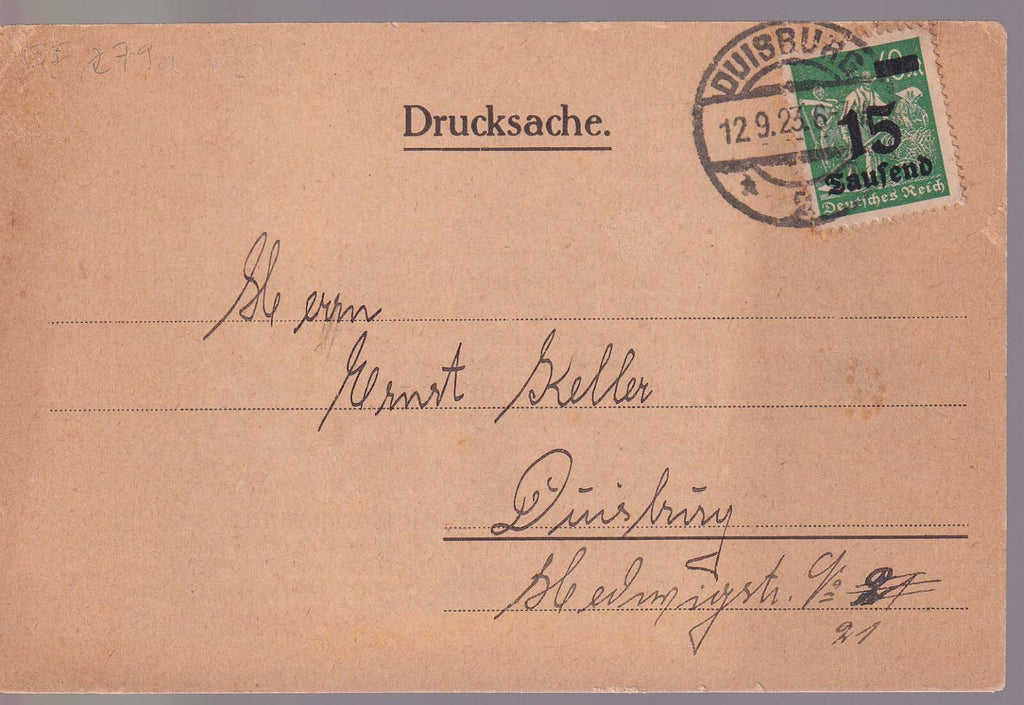 279
Drucksache.
DUISBURG
12.9.23.6-
40M
15
Tausend
Deutsches Reich
Herrn
Ernst Keller
Duisburg
Hedwigstr.
21